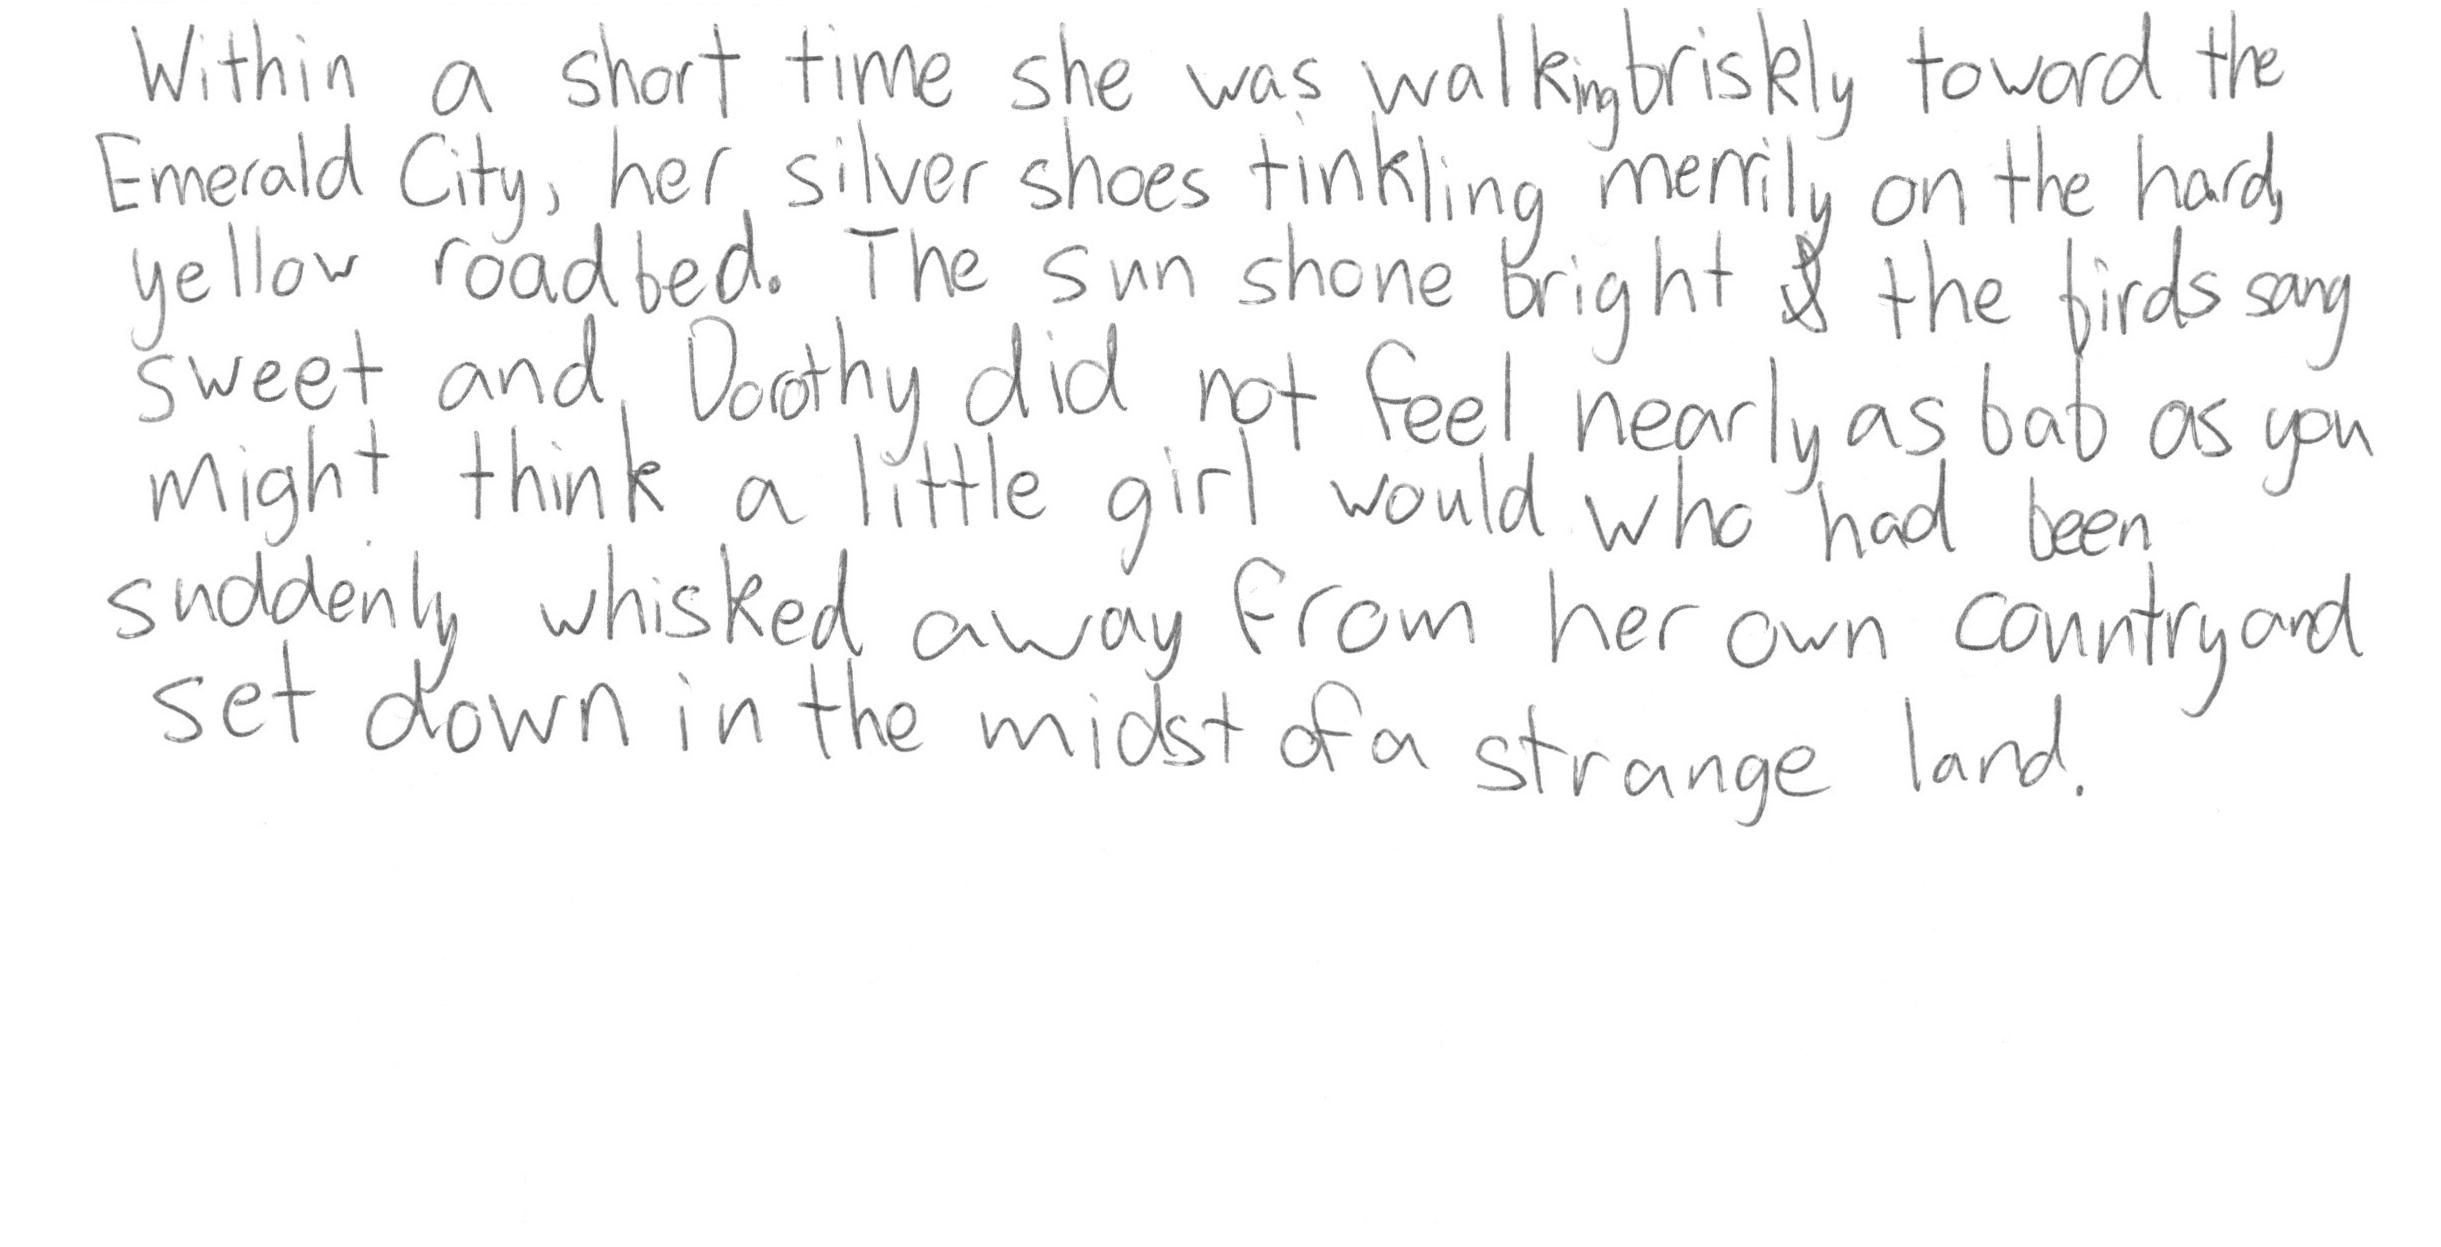 Within a short time she was walking briskly toward the
Emerald City, her silver shoes tinkling merrily on the hard,
yellow roadbed. The sun shone bright & the birds sang
sweet and Dorothy did not feel nearly as bab as you
might think a little girl would who had been
suddenly whisked away from her own country and
set down in the midst of a strange land.